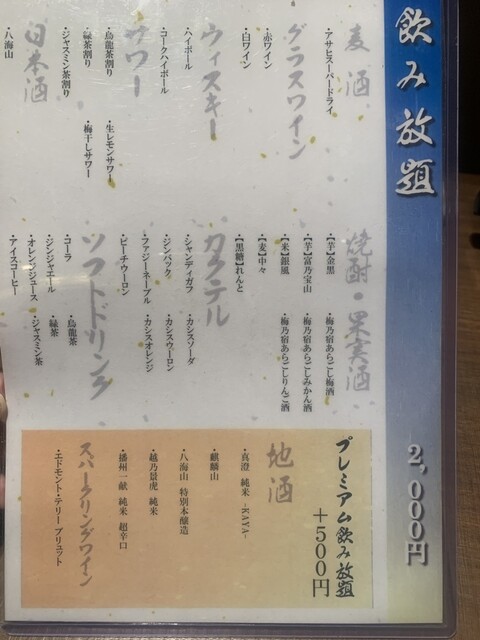 飲み放題
2,000円
麦酒
・アサヒスーパードライ
グラスワイン
・赤ワイン
・白ワイン
ウィスキー
・ハイボール
・コークハイボール
サワー
・烏龍茶割り
・緑茶割り
・ジャスミン茶割り
・生レモンサワー
・梅干しサワー
日本酒
・八海山
焼酎・果実酒
・【芋】金黒
・【芋】富乃宝山
・【米】銀風
・【麦】中々
・【黒糖】れんと
・梅乃宿あらごし梅酒
・梅乃宿あらごしみかん酒
・梅乃宿あらごしりんご酒
カクテル
・シャンディガフ
・ジンバック
・ファジーネーブル
・ピーチウーロン
・カシスソーダ
・カシスウーロン
・カシスオレンジ
ソフトドリンク
・コーラ
・ジンジャエール
・オレンジジュース
・アイスコーヒー
・烏龍茶
・緑茶
・ジャスミン茶
プレミアム飲み放題
+500円
地酒
・真澄 純米 -KAYA-
・麒麟山
・八海山 特別本醸造
・越乃景虎 純米
・播州一献 純米 超辛口
スパークリングワイン
・エドモント・テリー ブリュット